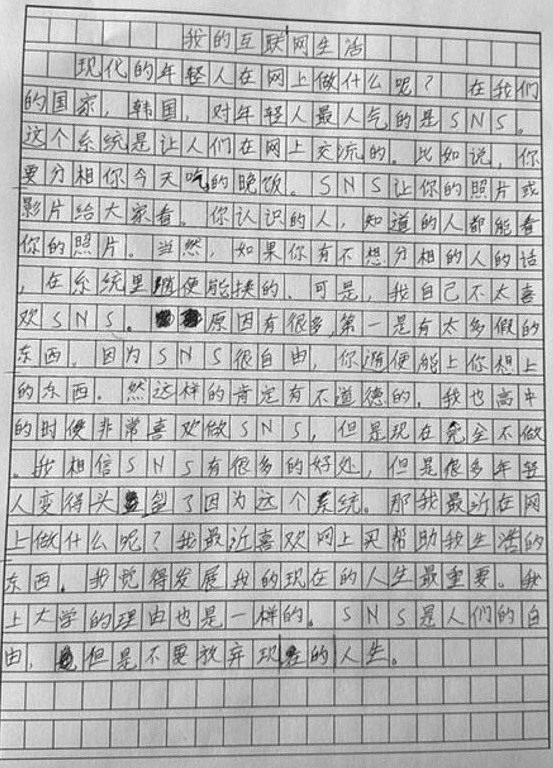 我的互联网生活
现代的年轻人在网上做什么呢？在我们
的国家，韩国，对年轻人最人气的是SNS。
这个系统是让人们在网上交流的。比如说，你
要分相你今天吃的晚饭。SNS让你的照片或
影片给大家看。你认识的人，知道的人都能看
你的照片。当然，如果你有不想分相的人的话
，在系统里随便能换的。可是，我自己不太喜
欢SNS。原因有很多，第一是有太多假的
东西，因为SNS很自由，你随便能上你想上
的东西。然这样的肯定有不道德的。我也高中
的时候非常喜欢做SNS，但是现在完全不做
。我相信SNS有很多的好处，但是很多年轻
人变得头了因为这个系统。那我最近在网
上做什么呢？我最近喜欢网上买帮助我生活的
东西。我觉得发展我的现在的人生最重要。我
上大学的理由也是一样的。SNS是人们的自
由，但是不要放弃现在的人生。